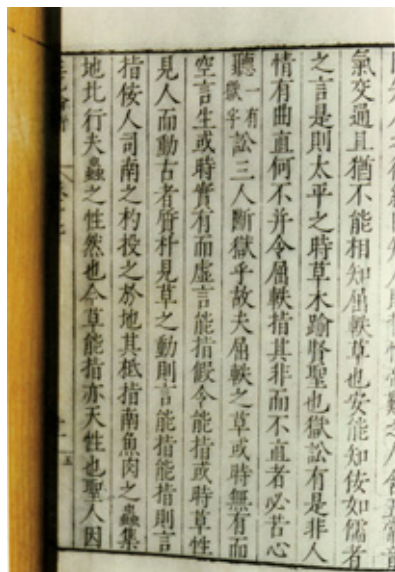 氣交通且猶不能相知屈軼草也安能知佞如儒者
之言是則太平之時草木踰賢聖也獄訟有是非人
情有曲直何不并令屈軼指其非而不直者必苦心
聽一有獄字訟三人斷獄乎故夫屈軼之草或時無有而
空言生或時實有而虛言能指假令能指或時草性
見人而動古者質朴見草之動則言能指能指則言
指佞人司南之杓投之於地其柢指南魚肉之蟲集
地北行夫蟲之性然也今草能指亦天性也聖人因